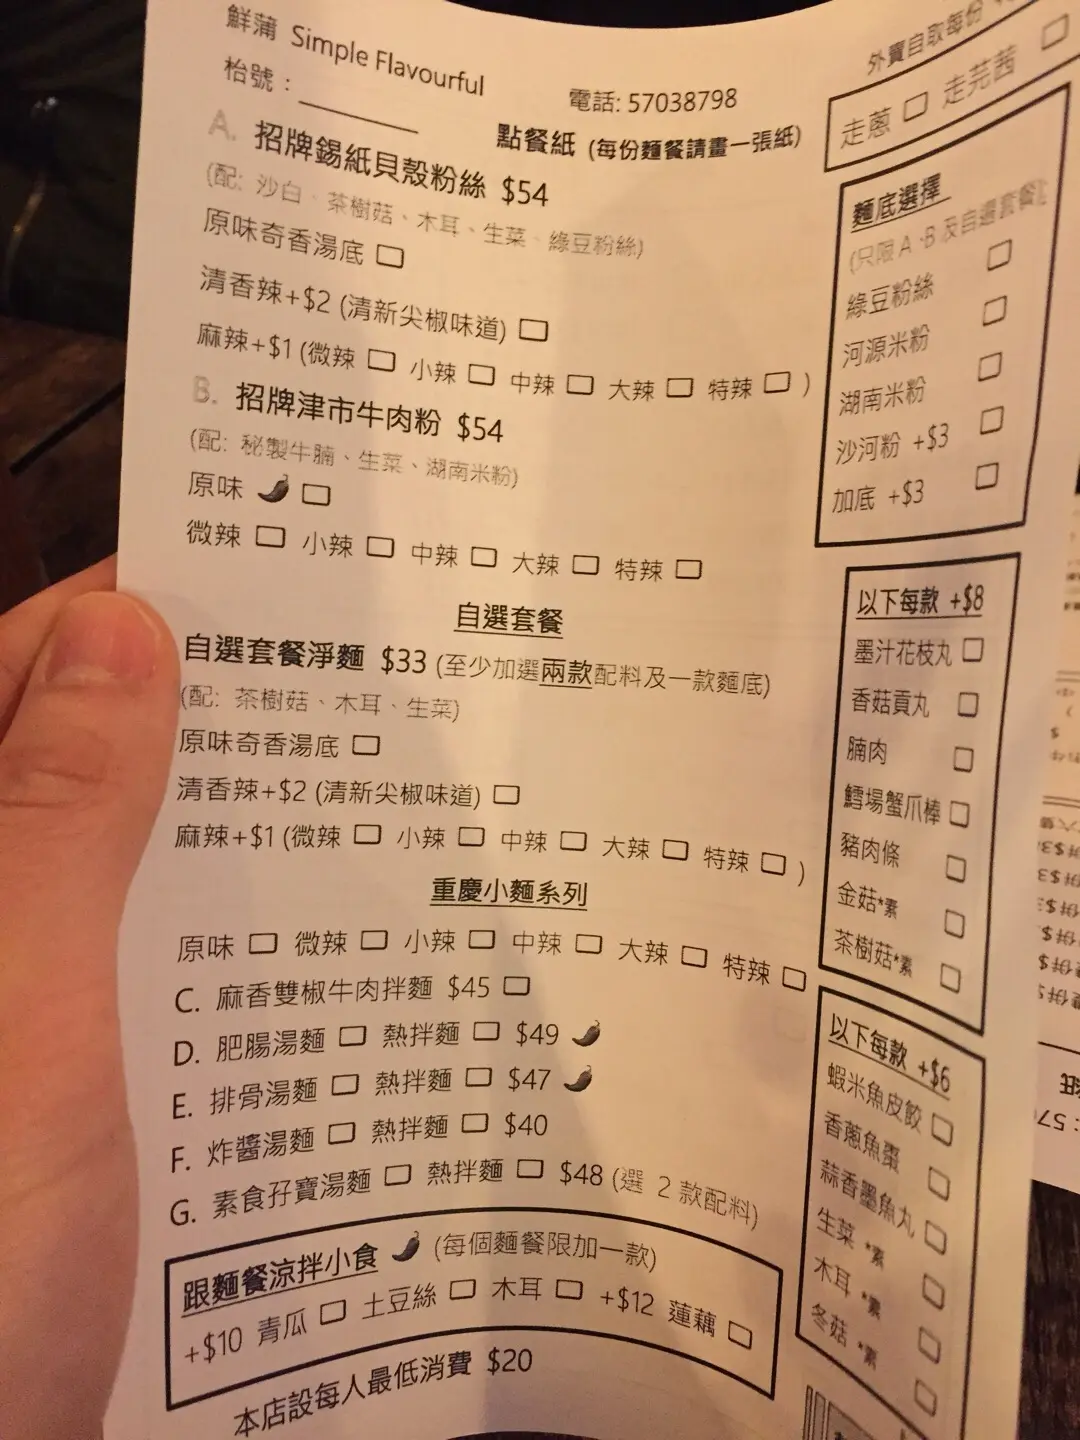 鮮蒲 Simple Flavourful
枱號：
電話: 57038798
點餐紙 (每份麵餐請畫一張紙)
A. 招牌錫紙貝殼粉絲 $54
(配: 沙白、茶樹菇、木耳、生菜、綠豆粉絲)
原味奇香湯底 □
清香辣+$2 (清新尖椒味道) □
麻辣+$1 (微辣 □ 小辣 □ 中辣 □ 大辣 □ 特辣 □ )
B. 招牌津市牛肉粉 $54
(配: 秘製牛腩、生菜、湖南米粉)
原味 □
微辣 □ 小辣 □ 中辣 □ 大辣 □ 特辣 □
自選套餐
自選套餐淨麵 $33 (至少加選兩款配料及一款麵底)
(配: 茶樹菇、木耳、生菜)
原味奇香湯底 □
清香辣+$2 (清新尖椒味道) □
麻辣+$1 (微辣 □ 小辣 □ 中辣 □ 大辣 □ 特辣 □ )
重慶小麵系列
原味 □ 微辣 □ 小辣 □ 中辣 □ 大辣 □ 特辣 □
C. 麻香雙椒牛肉拌麵 $45 □
D. 肥腸湯麵 □ 熱拌麵 □ $49
E. 排骨湯麵 □ 熱拌麵 □ $47
F. 炸醬湯麵 □ 熱拌麵 □ $40
G. 素食孖寶湯麵 □ 熱拌麵 □ $48 (選 2 款配料)
跟麵餐涼拌小食 (每個麵餐限加一款)
+$10 青瓜 □ 土豆絲 □ 木耳 □ +$12 蓮藕 □
本店設每人最低消費 $20
外賣自取每份
走蔥 □ 走芫茜 □
麵底選擇
(只限 A、B 及自選套餐
綠豆粉絲 □
河源米粉 □
湖南米粉 □
沙河粉 +$3 □
加底 +$3 □
以下每款 +$8
墨汁花枝丸 □
香菇貢丸 □
腩肉 □
鱈場蟹爪棒 □
豬肉條 □
金菇*素 □
茶樹菇*素 □
以下每款 +$6
蝦米魚皮餃 □
香蔥魚棗 □
蒜香墨魚丸 □
生菜 *素 □
木耳 *素 □
冬菇 *素 □